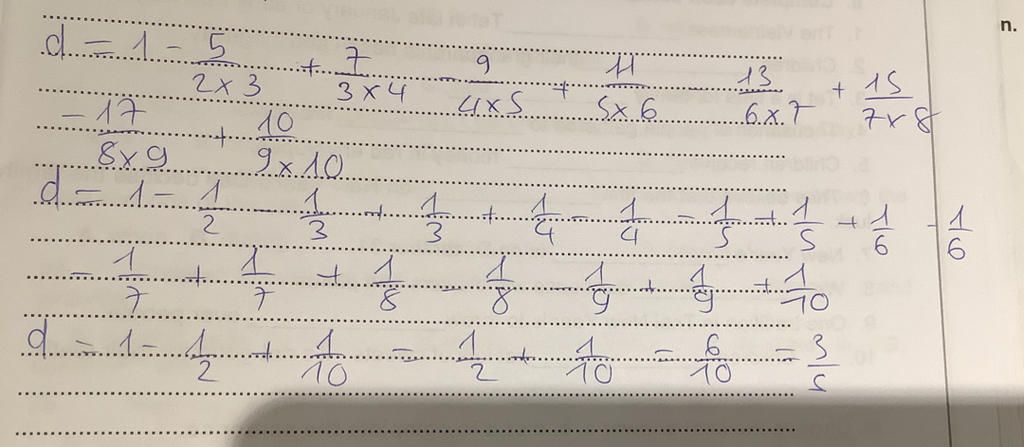 n.
d = 1 - 5/(2×3) + 7/(3×4) - 9/(4×5) + 11/(5×6) - 13/(6×7) + 15/(7×8)
- 17/(8×9) + 10/(9×10)
d = 1 - 1/2 - 1/3 + 1/3 + 1/4 - 1/4 - 1/5 + 1/5 + 1/6 - 1/6
- 1/7 + 1/7 + 1/8 - 1/8 - 1/9 + 1/9 + 1/10
d = 1 - 1/2 + 1/10 = 1/2 + 1/10 = 6/10 = 3/5